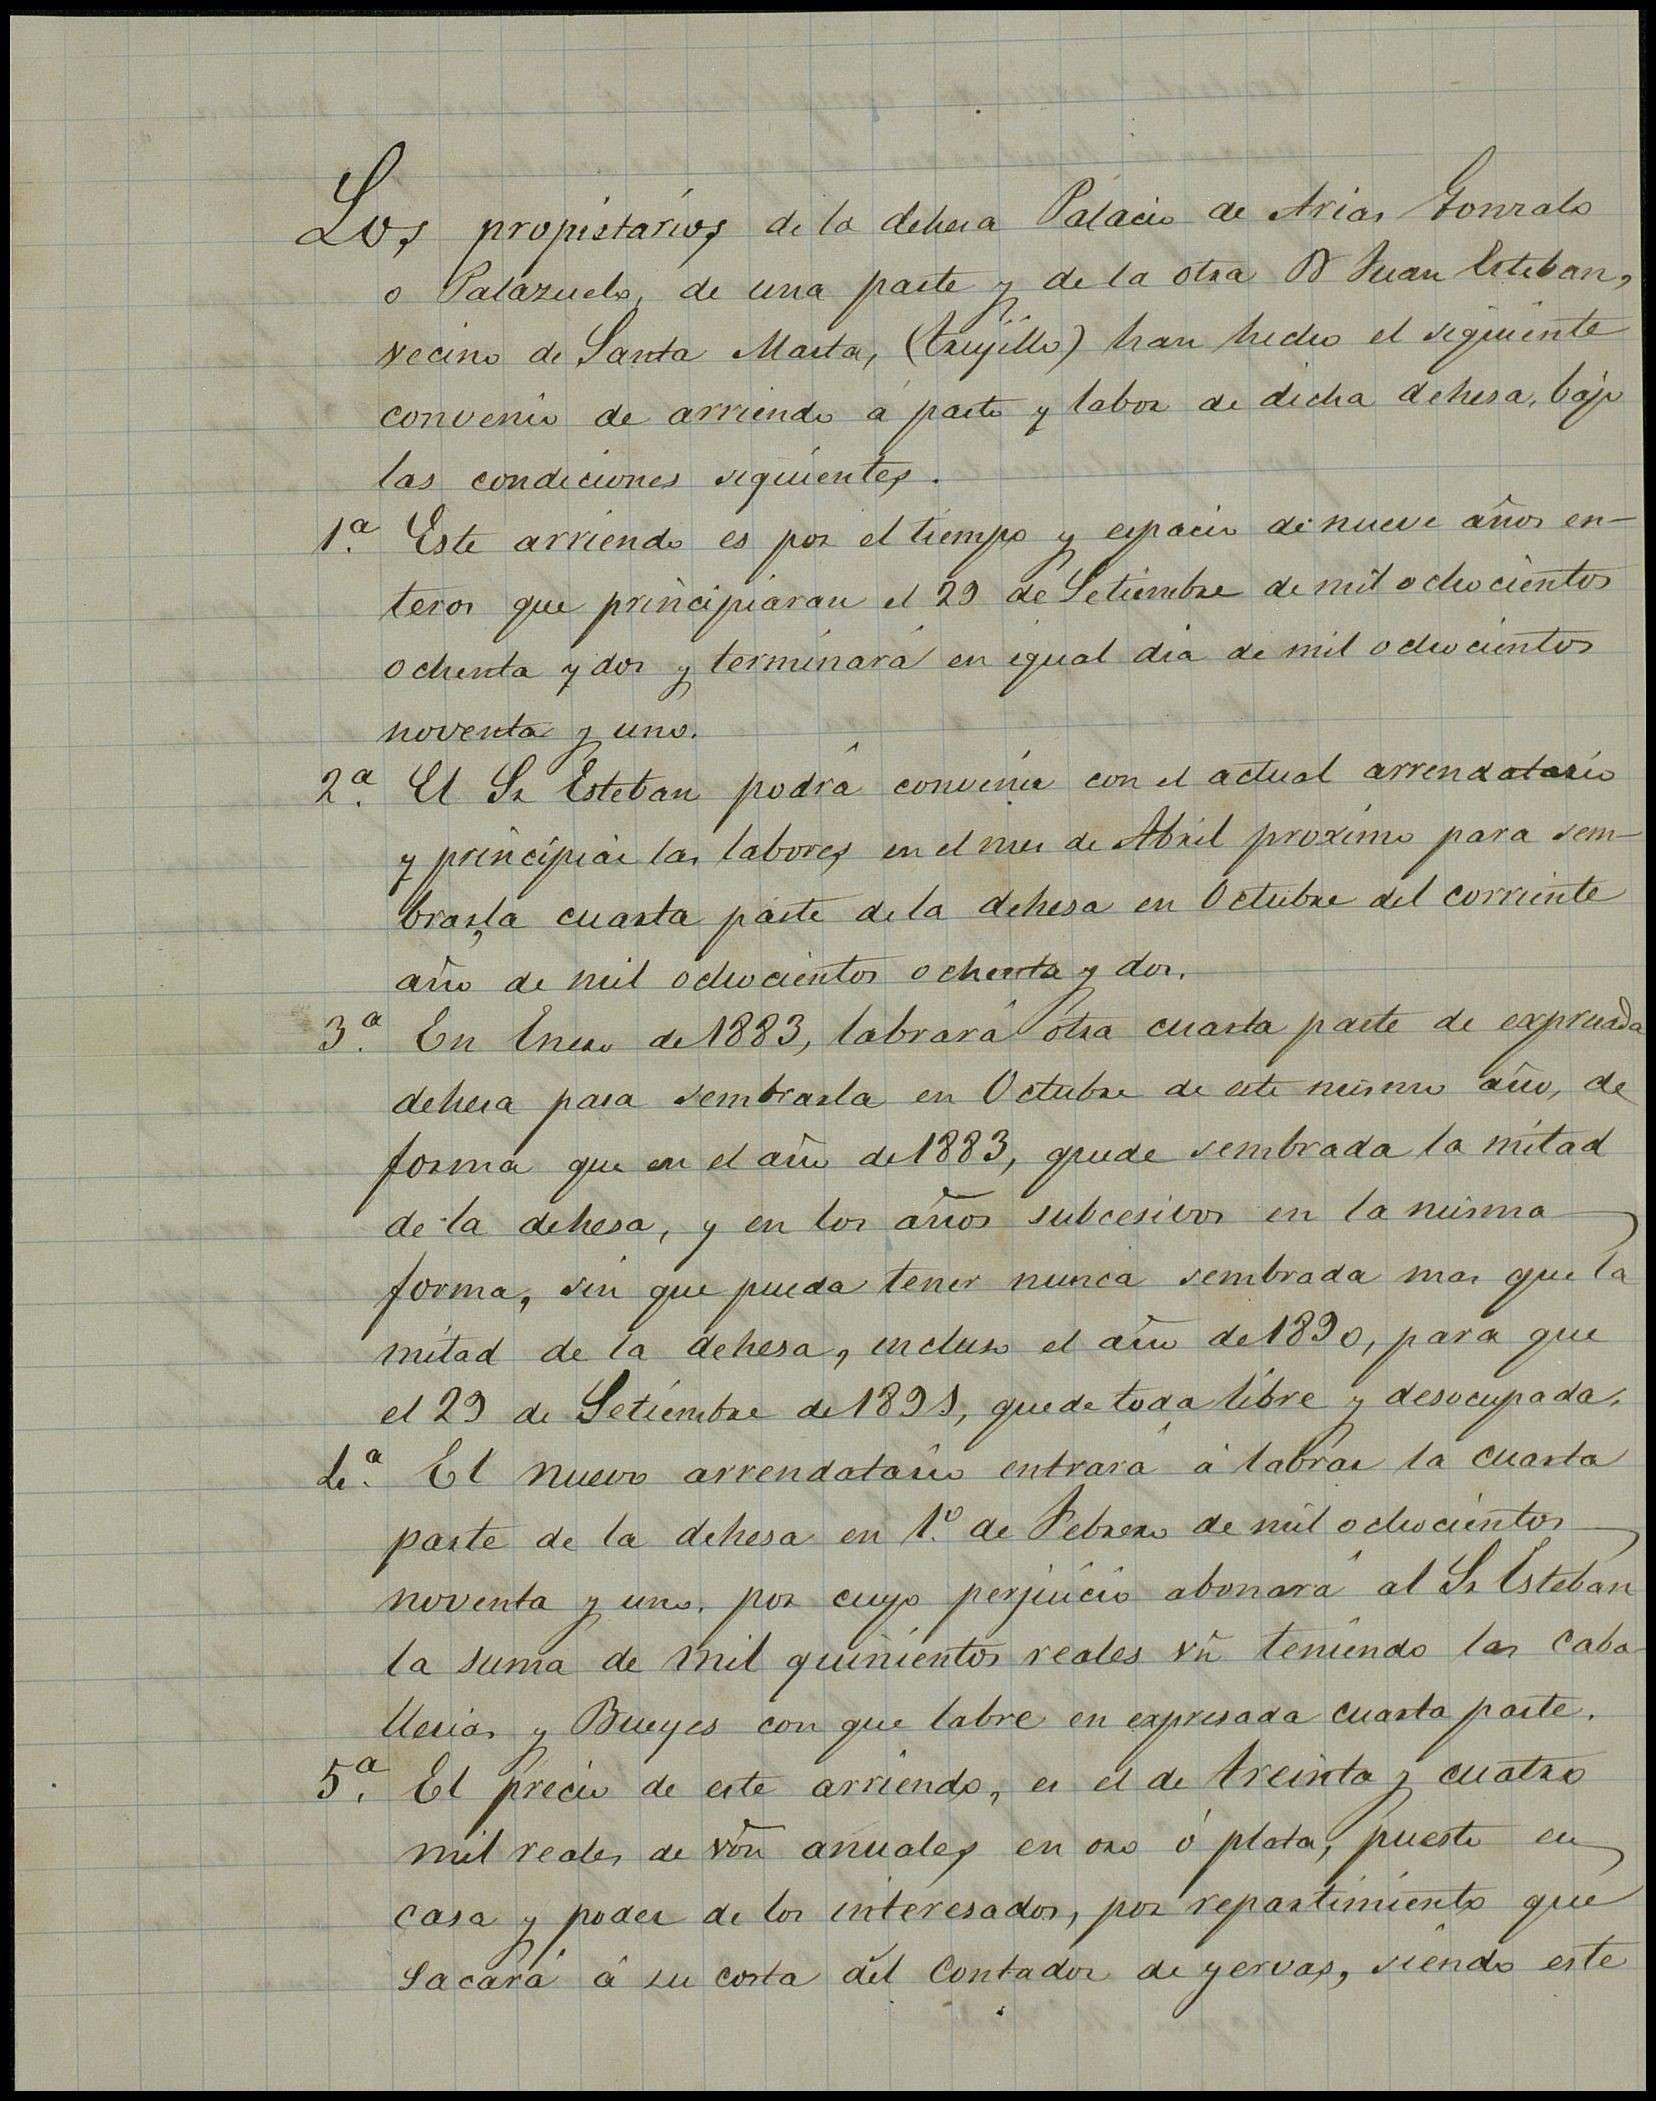 Los propietarios de la dehesa Palacio de Arias Gonzalo
o Palazuelo, de una parte y de la otra Dⁿ Juan Esteban,
vecino de Santa Marta, (trujillo) han hecho el siguiente
convenio de arriendo á pasto y labor de dicha dehesa, bajo
las condiciones siguientes.
1.ª Este arriendo es por el tiempo y espacio de nueve años en-
teros que principiaran el 29 de Setiembre de mil ochocientos
ochenta y dos y terminará en igual dia de mil ochocientos
noventa y uno.
2.ª El Sr Esteban podrá convenir con el actual arrendatario
y principiar las labores en el mes de Abril proximo para sem-
brar la cuarta parte de la dehesa en Octubre del corriente
año de mil ochocientos ochenta y dos.
3.ª En Enero de 1883, labrará otra cuarta parte de expresada
dehesa para sembrarla en Octubre de este mismo año, de
forma que en el año de 1883, quede sembrada la mitad
de la dehesa, y en los años subcesivos en la misma
forma, sin que pueda tener nunca sembrada mas que la
mitad de la dehesa, incluso el año de 1890, para que
el 29 de Setiembre de 1891, quede toda libre y desocupada.
4.ª El nuevo arrendatario entrará á labrar la cuarta
parte de la dehesa en 1.º de Febrero de mil ochocientos
noventa y uno, por cuyo perjuicio abonará al Sr Esteban
la suma de mil quinientos reales vn̄ teniendo las caba-
llerias y Bueyes con que labre en expresada cuarta parte.
5.ª El precio de este arriendo, es el de treinta y cuatro
mil reales de vōn anuales en oro ó plata, puesto en
casa y poder de los interesados, por repartimiento que
sacará á su costa del Contador de yervas, siendo este